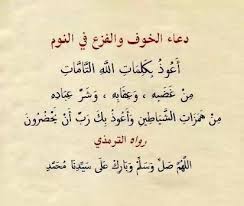 دعاء الخوف والفزع في النوم
أَعُوذُ بِكَلِمَاتِ اللَّهِ التَّامَّاتِ
مِنْ غَضَبِهِ ، وَعِقَابِهِ ، وَشَرِّ عِبَادِهِ
مِنْ هَمَزَاتِ الشَّيَاطِينِ وَأَعُوذُ بِكَ رَبِّ أَنْ يَحْضُرُونَ
رواه الترمذي
اللَّهُمَّ صَلِّ وَسَلِّمْ وَبَارِكْ عَلَى سَيِّدِنَا مُحَمَّدٍ